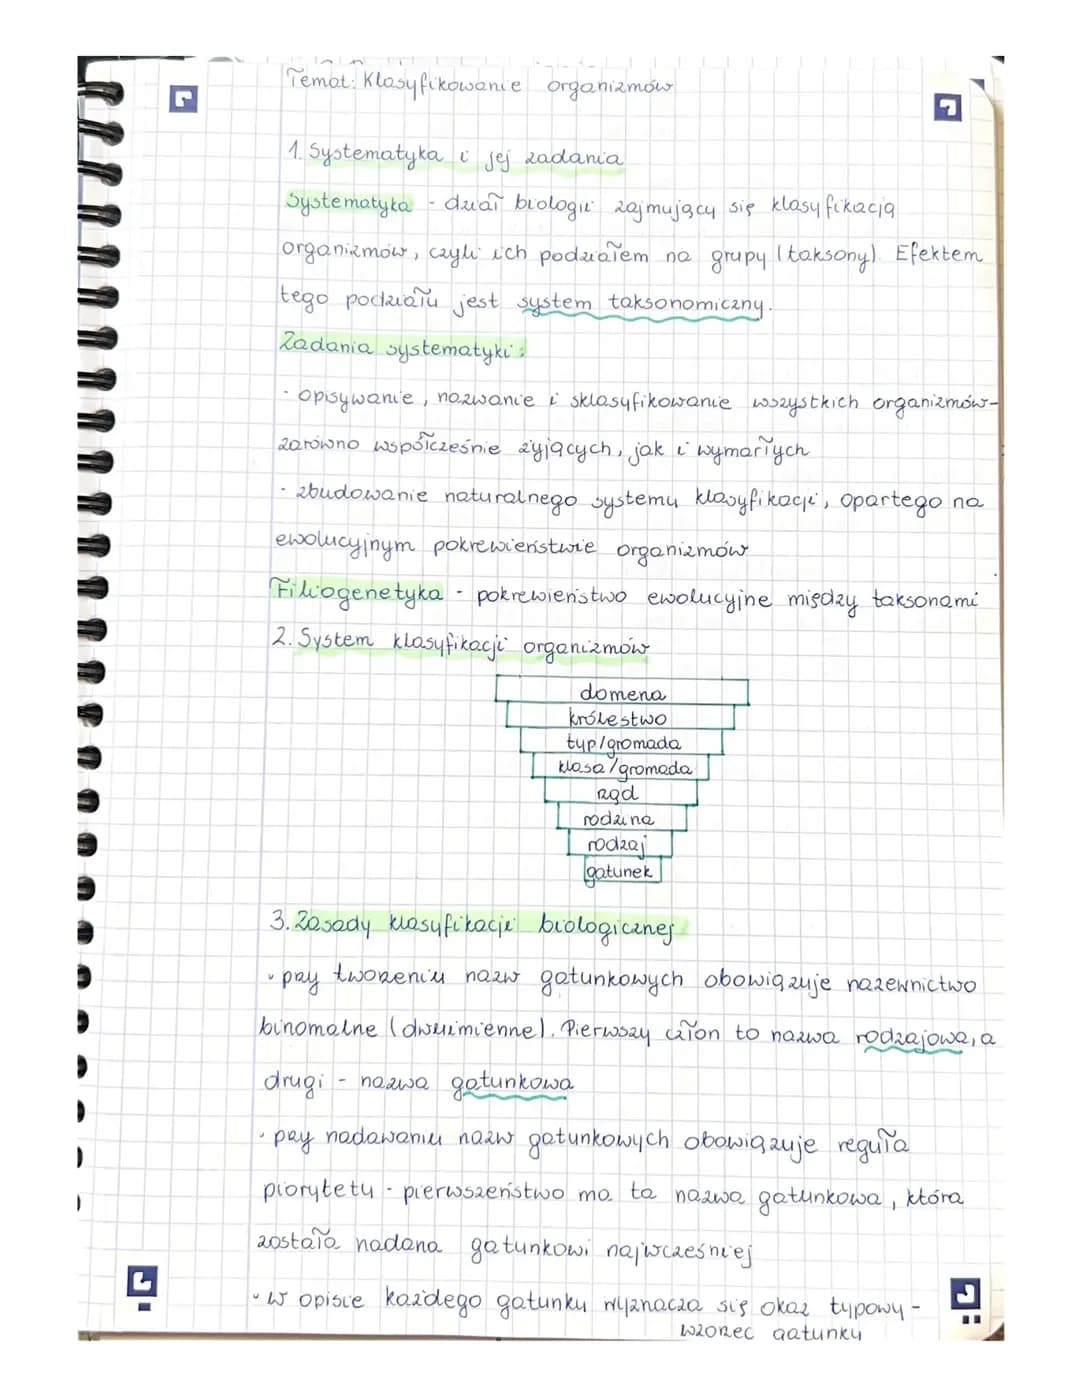 Temat: Klasyfikowanie organizmów
1. Systematyka i jej zadania
Systematyka - dział biologii zajmujący się klasyfikacją
organizmów, czyli ich podziałem na grupy (taksony). Efektem
tego podziału jest system taksonomiczny.
Zadania systematyki:
- opisywanie, nazwanie i sklasyfikowanie wszystkich organizmów-
zarówno współcześnie żyjących, jak i wymarłych
- zbudowanie naturalnego systemu klasyfikacji, opartego na
ewolucyjnym pokrewieństwie organizmów
Filiogenetyka - pokrewieństwo ewolucyjne między taksonami
2. System klasyfikacji organizmów
domena
królestwo
typ/gromada
klasa/gromada
rząd
rodzina
rodzaj
gatunek
3. Zasady klasyfikacji biologicznej
- przy tworzeniu nazw gatunkowych obowiązuje nazewnictwo
binomalne (dwuimienne). Pierwszy człon to nazwa rodzajowa, a
drugi - nazwa gatunkowa
- przy nadawaniu nazw gatunkowych obowiązuje reguła
piorytetu - pierwszeństwo ma ta nazwa gatunkowa, która
została nadana gatunkowi najwcześniej
- w opisie każdego gatunku wyznacza się okaz typowy -
wzorzec gatunku